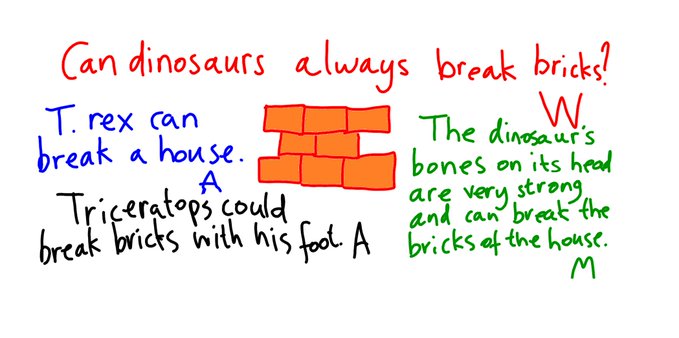 Can dinosaurs always break bricks?
W
T. rex can
break a house.
A
Triceratops could
break bricks with his foot. A
The dinosaur's
bones on its head
are very strong
and can break the
bricks of the house.
M